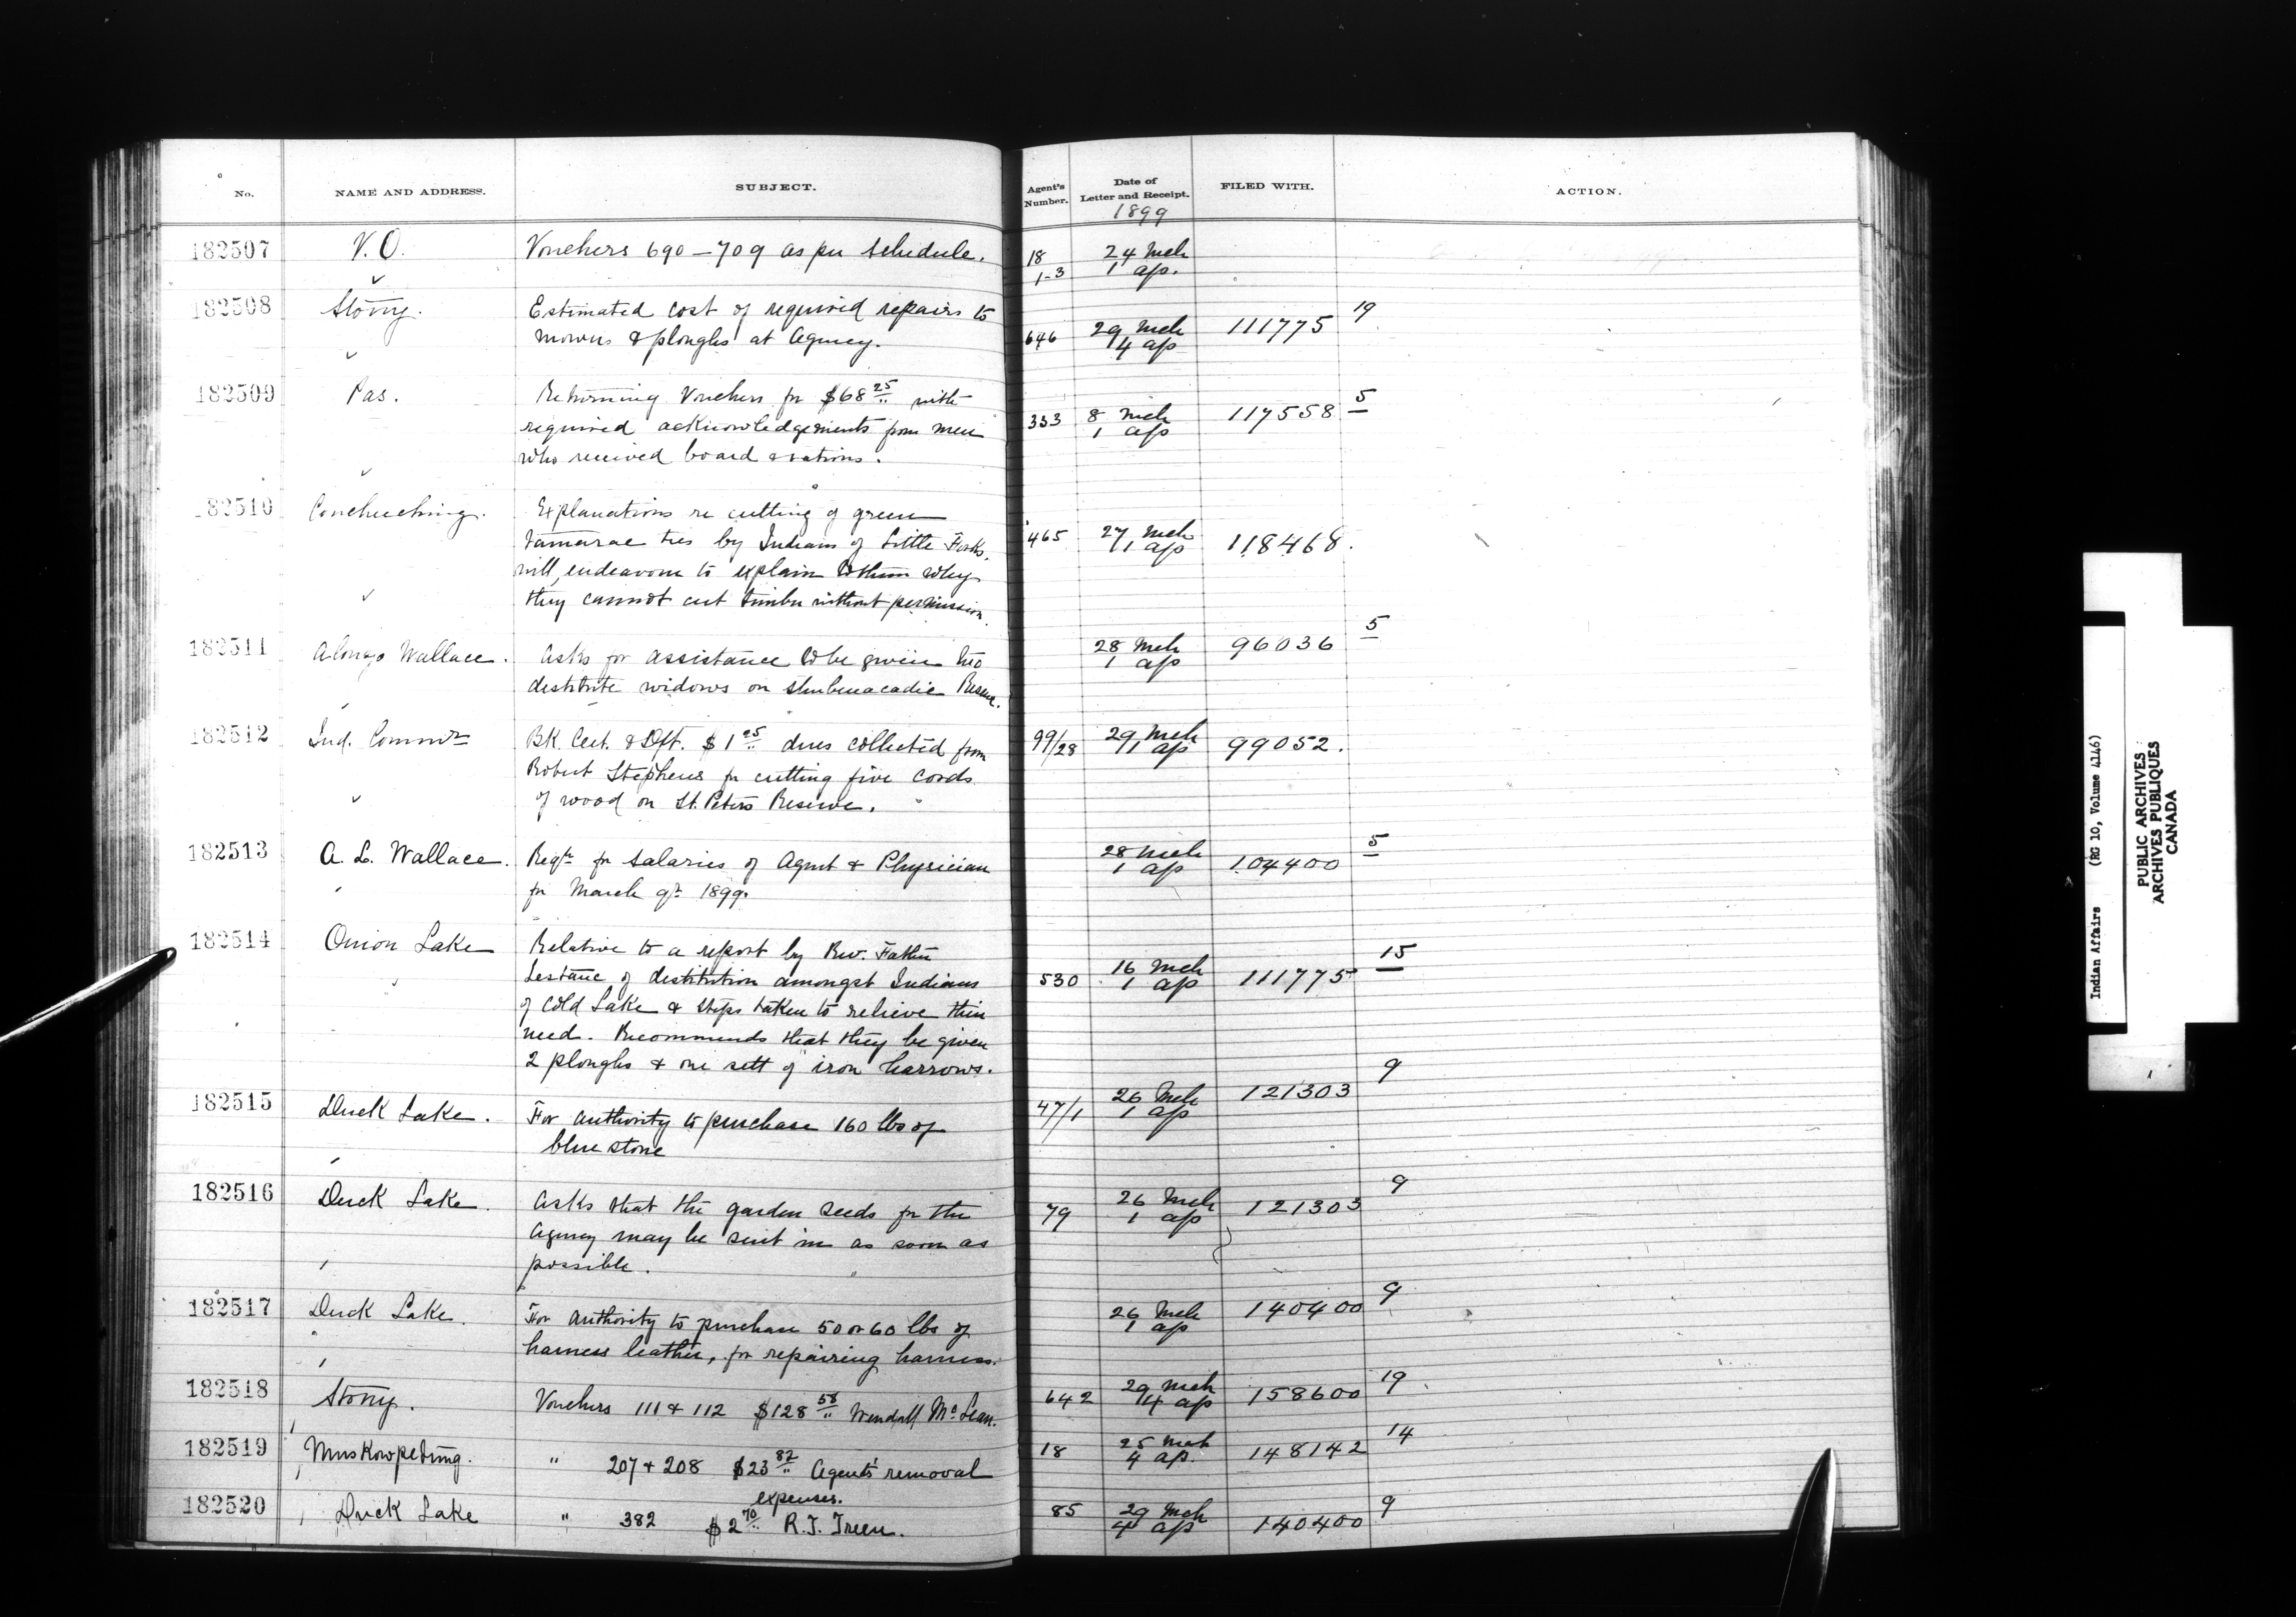 No. NAME AND ADDRESS. SUBJECT. Agent's Number. Date of Letter and Receipt. FILED WITH. ACTION.
1899
182507 V.O. Vouchers 690-709 as per schedule. 18 24 Mch
1-3 1 ap.
182508 Stony. Estimated cost of required repairs to
mowers & ploughs at Agency. 646 29 Mch 111775 19
4 ap
182509 Pas. Returning Vouchers for $68 25 with
required acknowledgements from men 333 8 Mch 117558 5
who received board & rations. 1 ap
182510 Couchuching. Explanations re cutting of green
tamarac ties by Indians of Little Forks. 465 27 Mch 118468.
will endeavour to explain to them why 1 ap
they cannot cut timber without permission.
182511 Alonzo Wallace. Asks for assistance to be given two 28 Mch 96036 5
destitute widows on Shubenacadie Reserve. 1 ap
182512 Ind. Commr Bk. Cert. & Dft. $1 25 dues collected from 99/28 29 Mch 99052.
Robert Stephens for cutting five cords 1 ap
of wood on St. Peters Reserve.
182513 A. L. Wallace. Reqn for salaries of Agent & Physician 28 Mch 104400 5
for March qr 1899. 1 ap
182514 Onion Lake Relative to a report by Rev. Father
Lestanc of destitution amongst Indians 530 16 Mch 111775 15
of Cold Lake & steps taken to relieve their 1 ap
need. Recommends that they be given
2 ploughs & one sett of iron harrows.
182515 Duck Lake. For authority to purchase 160 lbs of 47/1 26 Mch 121303 9
blue stone 1 ap
182516 Duck Lake. Asks that the garden seeds for the 79 26 Mch 121303 9
Agency may be sent in as soon as 1 ap
possible.
182517 Duck Lake. For authority to purchase 50 or 60 lbs of 26 Mch 140400 9
harness leather, for repairing harness. 1 ap
182518 Stony. Vouchers 111 & 112 $128 58 Wendell McLean. 642 29 Mch 158600 19
4 ap
182519 Muskowpetung. " 207 & 208 $23 82 Agents' removal 18 25 Mch 148142 14
expenses. 4 ap.
182520 Duck Lake " 382 $2 70 R.J. Treen. 85 29 Mch 140400 9
4 ap
Indian Affairs (RG 10, Volume 4146)
PUBLIC ARCHIVES
ARCHIVES PUBLIQUES
CANADA